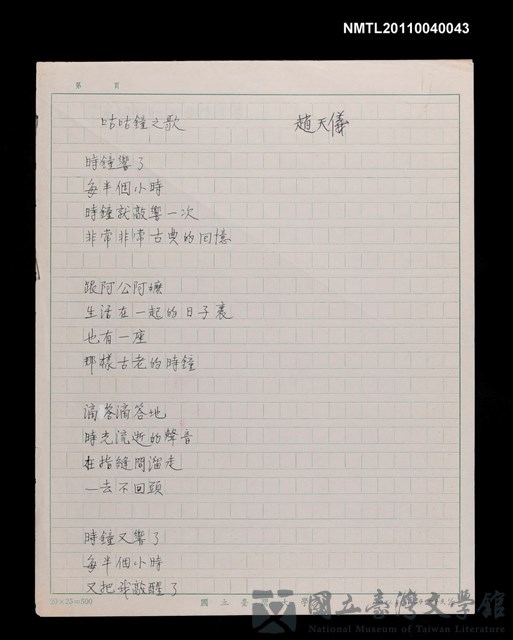 NMTL20110040043
第 頁
咕咕鐘之歌 趙天儀
時鐘響了
每半個小時
時鐘就敲響一次
非常非常古典的回憶
跟阿公阿嬤
生活在一起的日子裏
也有一座
那樣古老的時鐘
滴答滴答地
時光流逝的聲音
在指縫間溜走
一去不回頭
時鐘又響了
每半個小時
又把我敲醒了
20×25=500 國立臺大學
國立臺灣文學館
National Museum of Taiwan Literature